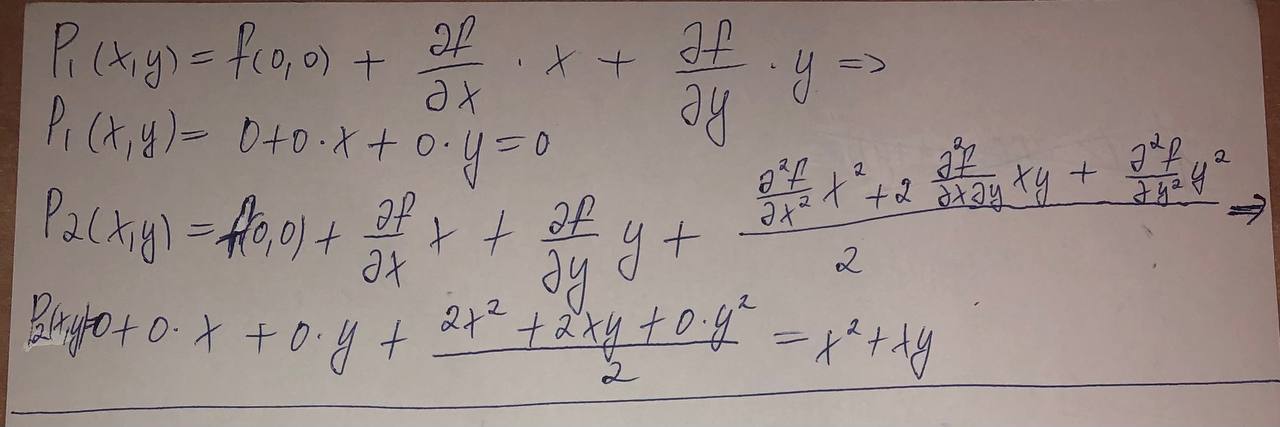 P₁(x,y) = f(0,0) + ∂f/∂x · x + ∂f/∂y · y =>
P₁(x,y) = 0+0·x+0·y=0
P₂(x,y) = f(0,0) + ∂f/∂x x + ∂f/∂y y + (∂²f/∂x² x² + 2 ∂²f/∂x∂y xy + ∂²f/∂y² y²)/2 =>
P₂(x,y)=0+0·x+0·y+(2x²+2xy+0·y²)/2 = x²+xy